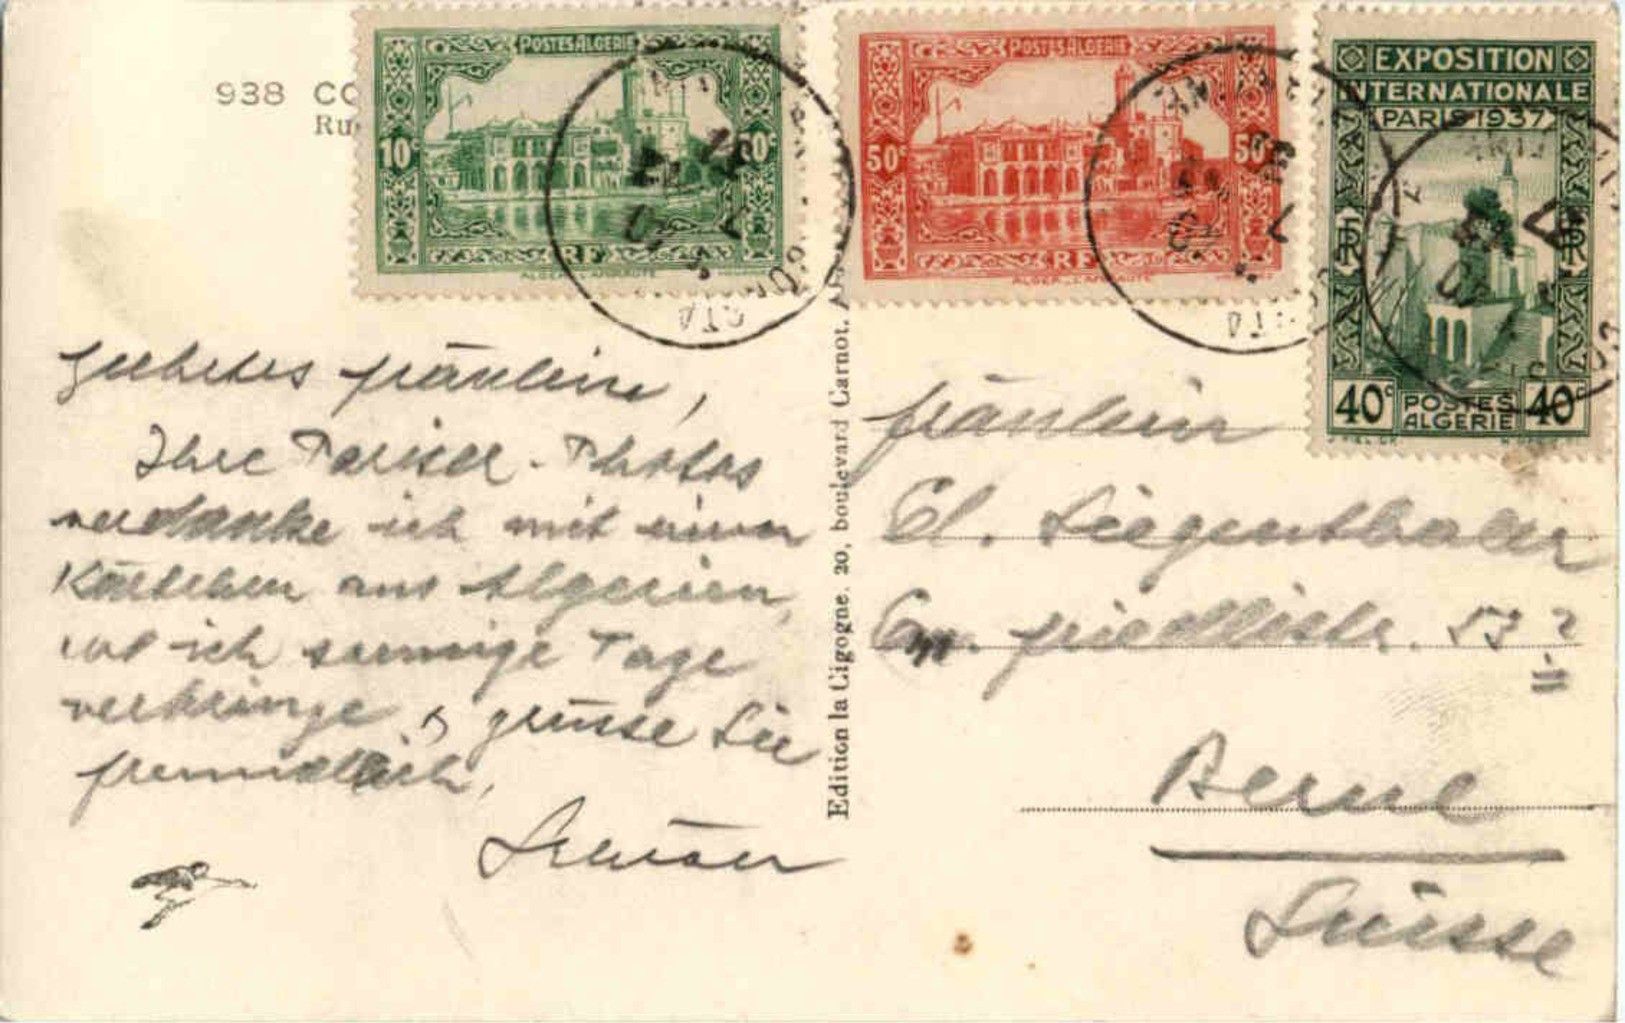 938 CO
Ru
POSTES ALGERIE
10c
RF
ALGER _ L'AMIRAUTÉ
POSTES ALGERIE
50c 50c
RF
ALGER _ L'AMIRAUTÉ
EXPOSITION
INTERNATIONALE
PARIS 1937
40c POSTES 40c
ALGERIE
Liebetes Fräulein,
Ihre Pariser-Photos
verdanke ich mit einem
Kärtchen aus Algerien,
wo ich sonnige Tage
verbringe & grüsse Sie
freundlich,
Edition la Cigogne, 20, boulevard Carnot, A
Fräulein
Cl. Siegenthaler
friedlistr. 53 ?
Berne
Suisse